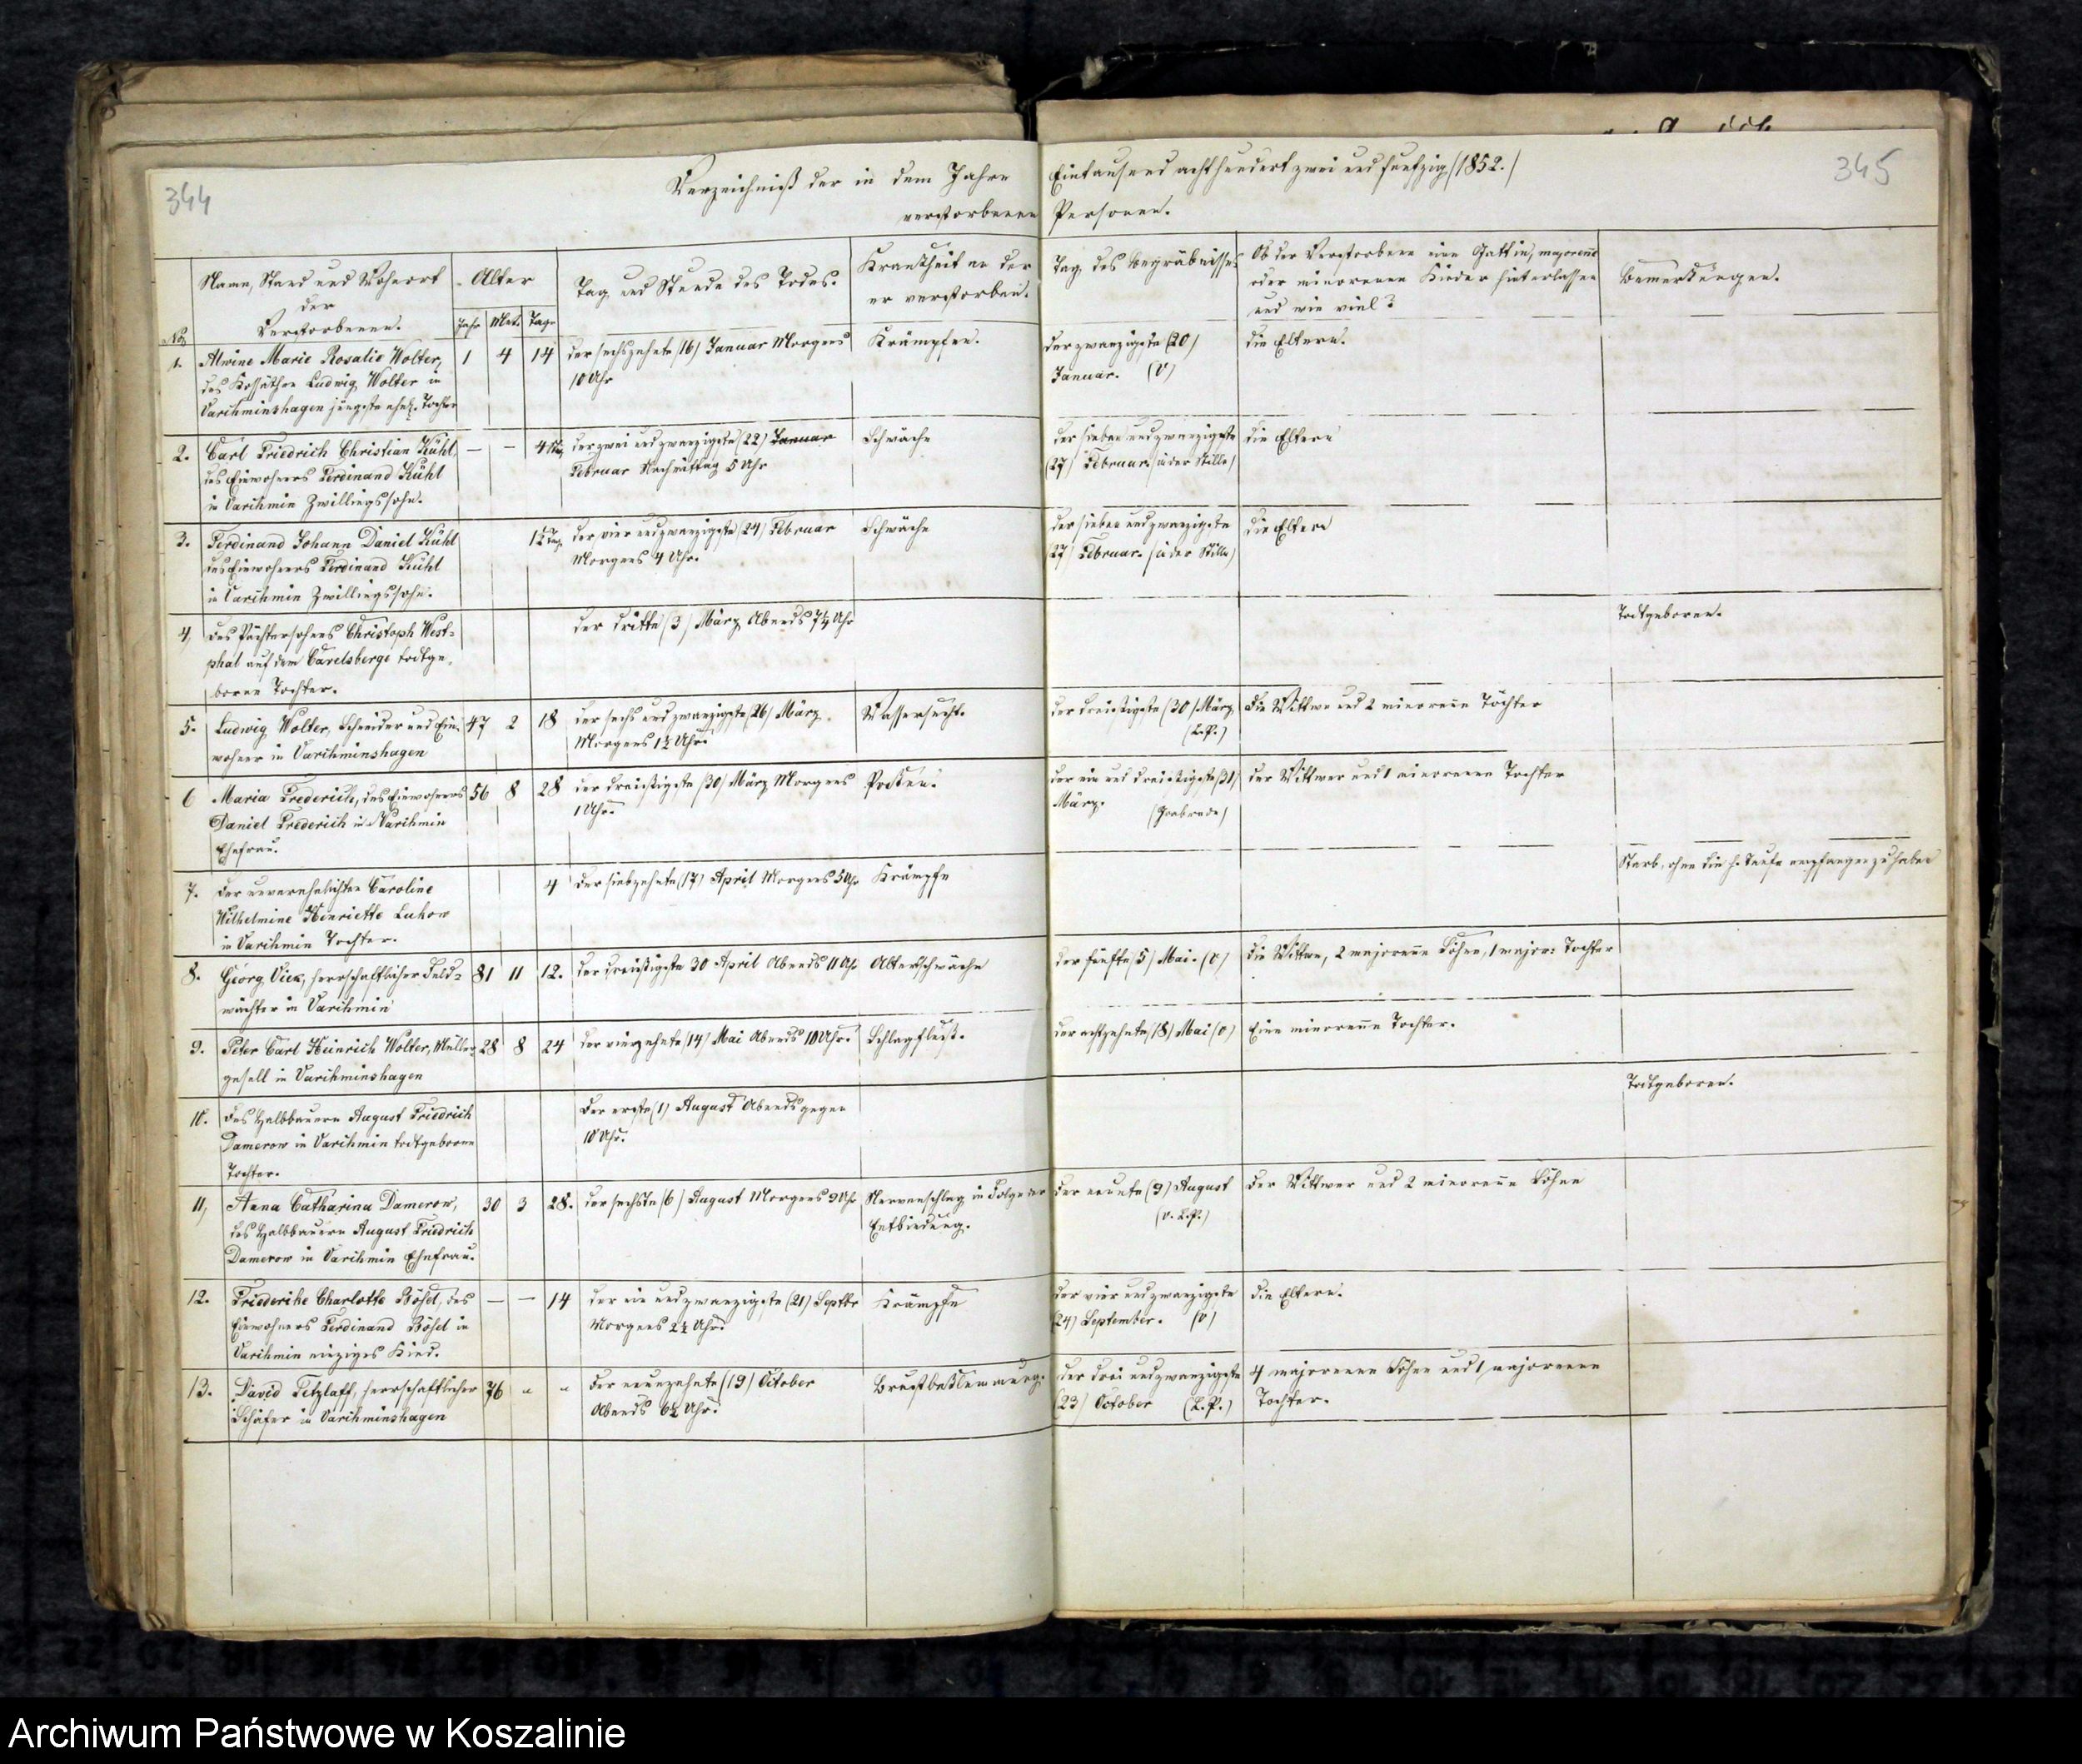 344
345
Verzeichniß der in dem Jahre Eintausend achthundert zwei und funfzig /1852./
verstorbenen Personen.
No
Name, Stand und Wohnort
der
Verstorbenen.
Alter
Jahr Mnt. Tage
Tag und Stunde des Todes.
Krankheit an der
er verstorben.
Tag des Begräbnisses
Ob der Verstorbene eine Gattin, majorenne
oder minorenne Kinder hinterlassen
und wie viel?
Bemerkungen.
1. Alwine Marie Rosalie Wolter, 1 4 14 der sechszehnte (16) Januar Morgens Krämpfen. der zwanzigste (20) die Eltern.
des Kossäthen Ludwig Wolter in 10 Uhr Januar. (V)
Varchminshagen jüngste ehel. Tochter
2. Carl Friedrich Christian Kühl, — — 4 der zwei und zwanzigste (22) Januar Schwäche der sieben und zwanzigste die Eltern
des Einwohners Ferdinand Kühl Februar Nachmittag 5 Uhr (27) Februar. (in der Stille)
in Varchmin Zwillingssohn.
3. Ferdinand Johann Daniel Kühl der vier und zwanzigste (24) Februar Schwäche der sieben und zwanzigste die Eltern
des Einwohners Ferdinand Kühl Morgens 4 Uhr. (27) Februar. (in der Stille)
in Varchmin Zwillingssohn.
4, des Pächtersohnes Christoph West- der dritte (3) März Abends 7½ Uhr Todtgeboren.
phal auf dem Carlsberge todtge-
borne Tochter.
5. Ludwig Wolter, Schneider und Ein- 47 2 18 der sechs und zwanzigste (26) März Wassersucht. der dreißigste (30) März die Wittwe und 2 minorenne Töchter
wohner in Varchminshagen Morgens 1½ Uhr. (L.P.)
6 Maria Frederich, des Einwohners 56 8 28 der dreißigste (30) März Morgens Pocken. der ein und dreißigste (31) der Wittwer und 1 minorenne Tochter
Daniel Frederich in Varchmin 1 Uhr. März. (Grabrede)
Ehefrau.
7. der unverehelichten Caroline 4 der siebzehnte (17) April Morgens 5 Uhr Krämpfe Starb, ohne die h. Taufe empfangen zu haben
Wilhelmine Henriette Luhow
in Varchmin Tochter.
8. Georg Vick, herrschaftlicher Feld- 81 11 12. der dreißigste 30 April Abends 11 Uhr Altersschwäche der fünfte (5) Mai. (V) die Wittwe, 2 majorenne Söhne, 1 major: Tochter
wächter in Varchmin
9. Peter Carl Heinrich Wolter, Müller- 28 8 24 der vierzehnte (14) Mai Abends 10 Uhr. Schlagfluß. der achtzehnte (18) Mai (V) Eine minorenne Tochter.
gesell in Varchminshagen
10. des Halbbauern August Friedrich der erste (1) August Abends gegen Todtgeboren.
Damerow in Varchmin todtgeborne 10 Uhr.
Tochter.
11, Anna Catharina Damerow, 30 3 28. der sechste (6) August Morgens 9 Uhr Nervenschlag in Folge der der neunte (9) August der Wittwer und 2 minorenne Söhne
des Halbbauern August Friedrich Entbindung. (V. L.P.)
Damerow in Varchmin Ehefrau.
12. Friederike Charlotte Bösel, des — — 14 der ein und zwanzigste (21) Septbr Krämpfe der vier und zwanzigste die Eltern.
Einwohners Ferdinand Bösel in Morgens 2½ Uhr. (24) September. (V)
Varchmin einziges Kind.
13. David Tetzlaff, herrschaftlicher 76 " " der neunzehnte (19) October Brustbeklemmung. der drei und zwanzigste 4 majorenne Söhne und 1 majorenne
Schäfer in Varchminshagen Abends 6½ Uhr. (23) October (L.P.) Tochter.
Archiwum Państwowe w Koszalinie